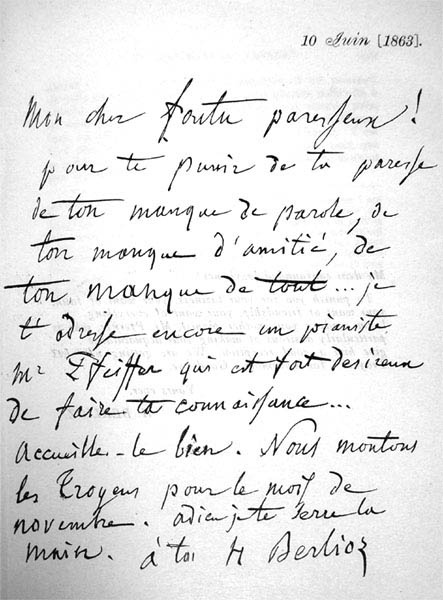 10 Juin [1863].
Mon cher foutu paresseux !
pour te punir de ta paresse
de ton manque de parole, de
ton manque d'amitié, de
ton manque de tout... je
t'adresse encore un pianiste
Mr Pfeiffer qui est fort desireux
de faire ta connaissance...
Accueille-le bien. Nous montons
les Troyens pour le mois de
novembre. adieu je te serre la
main. à toi H Berlioz